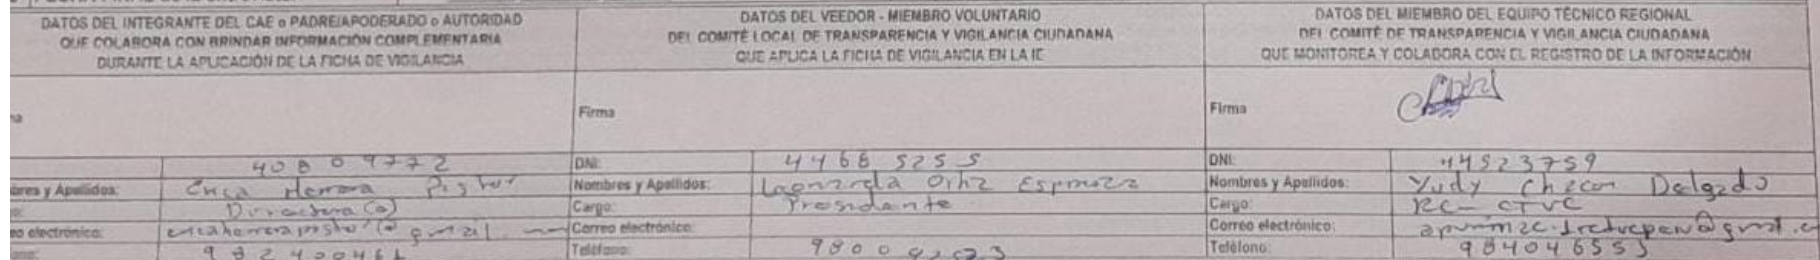 DATOS DEL INTEGRANTE DEL CAE o PADRE/APODERADO o AUTORIDAD
QUE COLABORA CON BRINDAR INFORMACIÓN COMPLEMENTARIA
DURANTE LA APLICACIÓN DE LA FICHA DE VIGILANCIA
DATOS DEL VEEDOR - MIEMBRO VOLUNTARIO
DEL COMITÉ LOCAL DE TRANSPARENCIA Y VIGILANCIA CIUDADANA
QUE APLICA LA FICHA DE VIGILANCIA EN LA IE
DATOS DEL MIEMBRO DEL EQUIPO TÉCNICO REGIONAL
DEL COMITÉ DE TRANSPARENCIA Y VIGILANCIA CIUDADANA
QUE MONITOREA Y COLABORA CON EL REGISTRO DE LA INFORMACIÓN
Firma
Firma
40809772
DNI: 44685255
DNI: 44523759
Apellidos: Herrera
Nombres y Apellidos: Ortiz Espinoza
Nombres y Apellidos: Yudy Checon Delgado
Directora (a)
Cargo: Presidente
Cargo: RC- CTVC
electrónico:
Correo electrónico:
Correo electrónico:
Teléfono:
Teléfono: 984046555